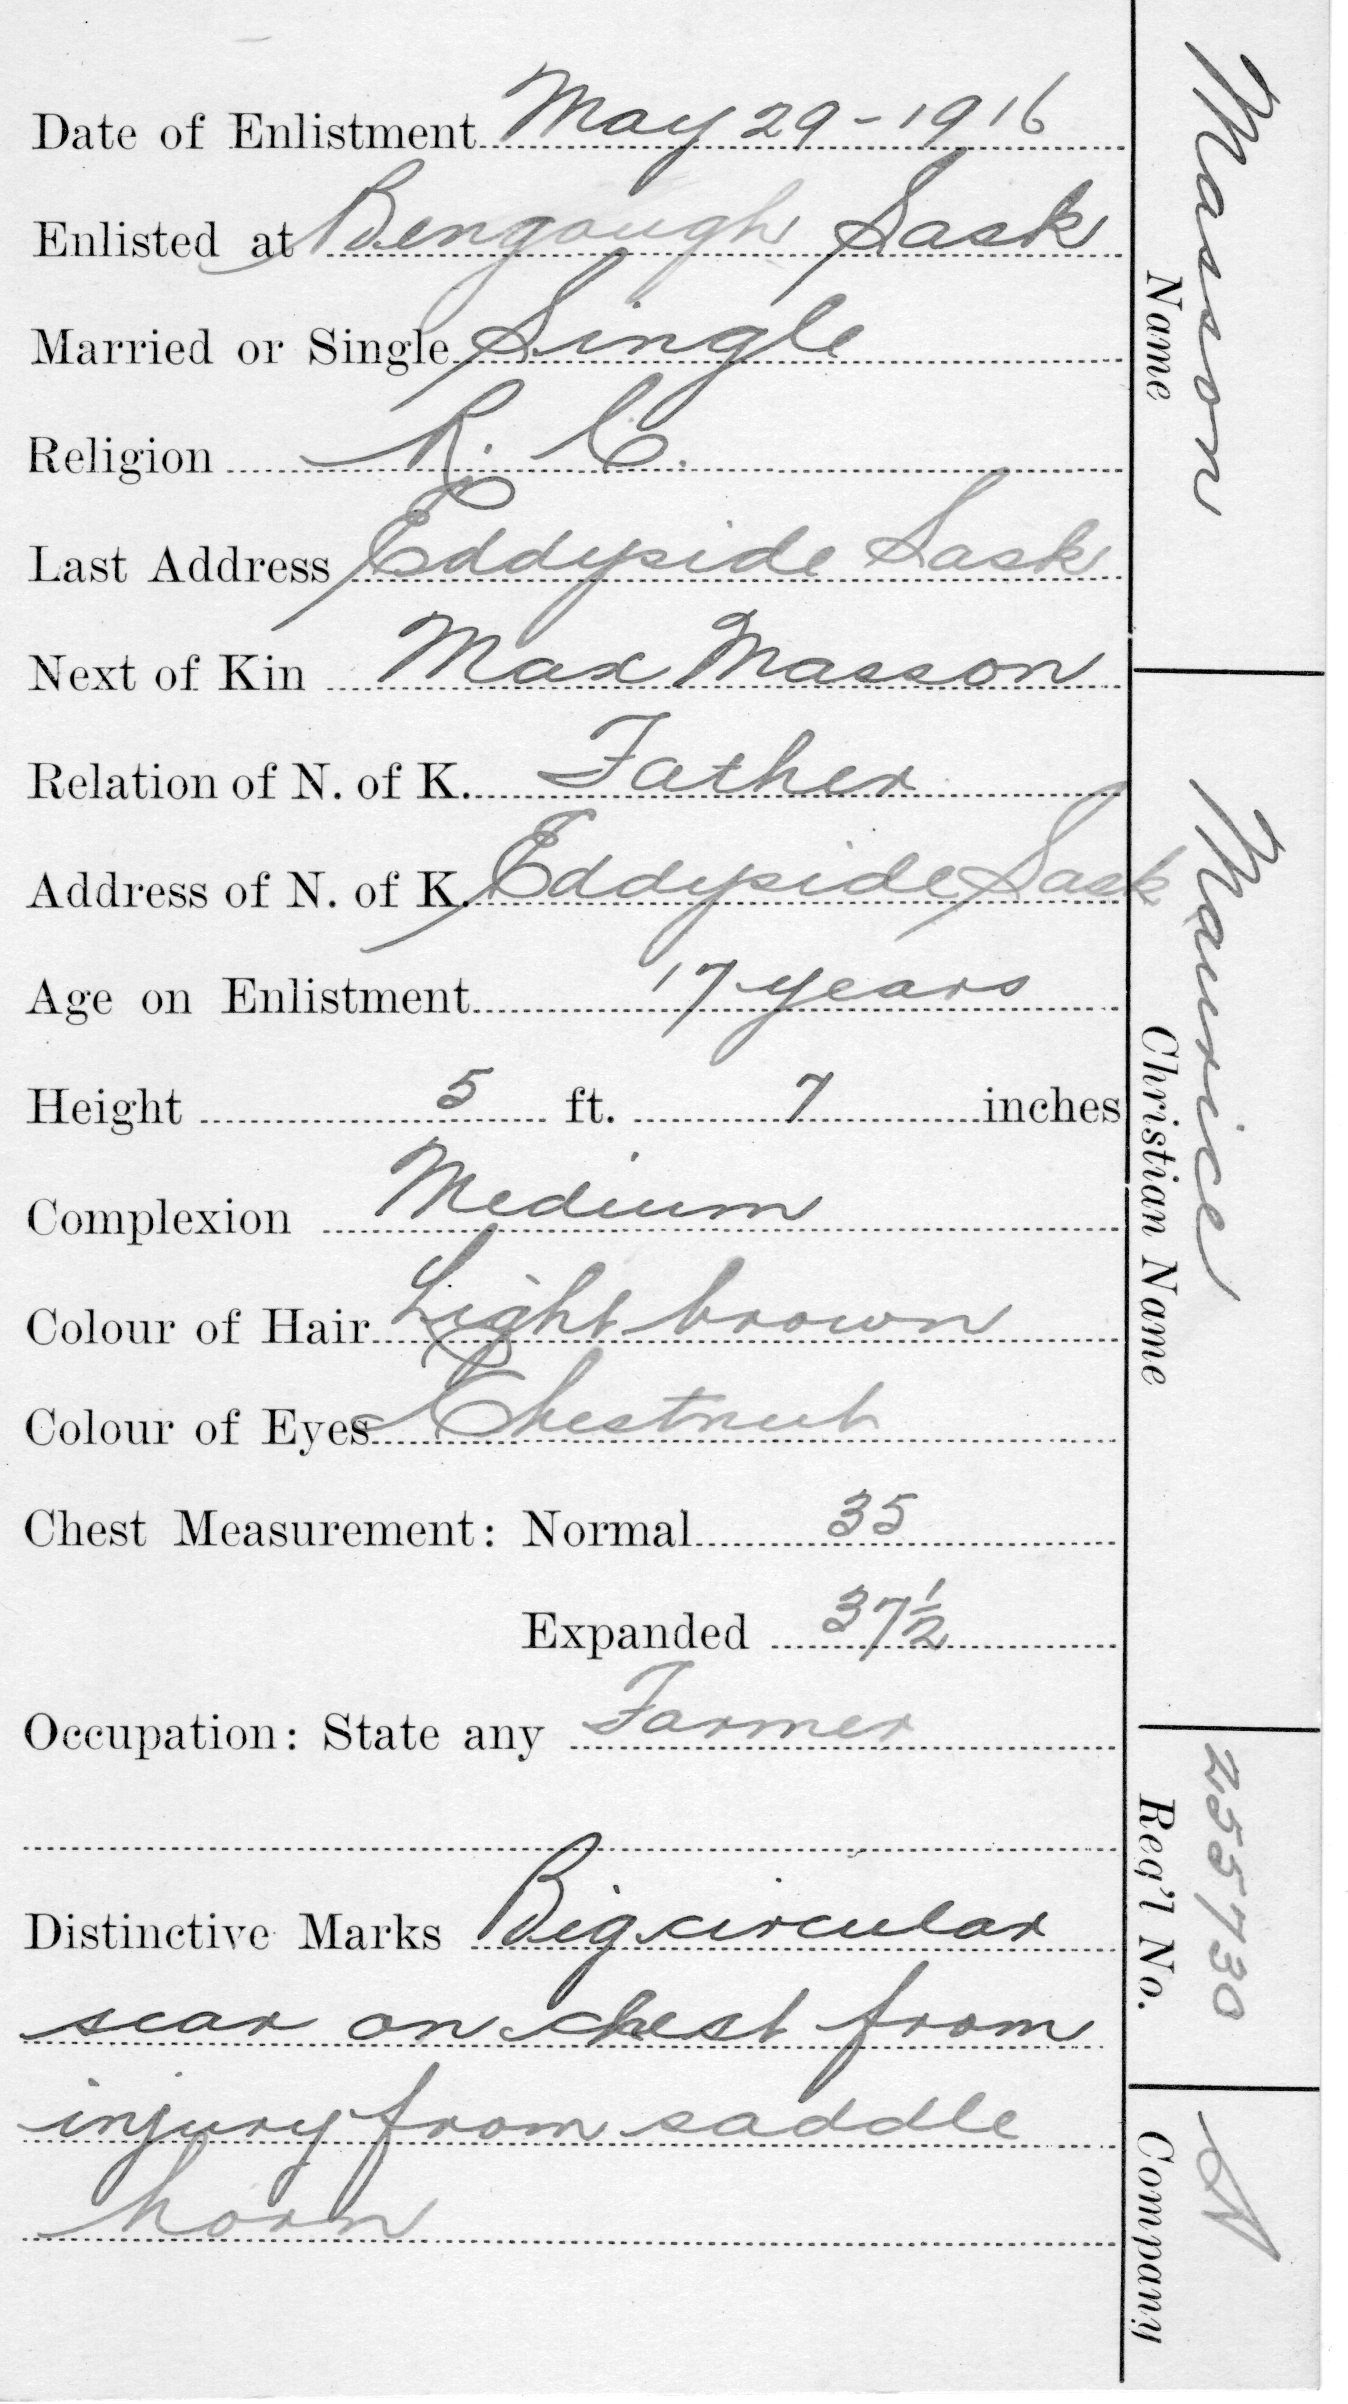 Date of Enlistment May 29 - 1916
Enlisted at Bengough Sask
Married or Single Single
Religion R. C.
Last Address Eddyside Sask
Next of Kin Max Masson
Relation of N. of K. Father
Address of N. of K. Eddyside Sask
Age on Enlistment 17 years
Height 5 ft. 7 inches
Complexion Medium
Colour of Hair Light brown
Colour of Eyes Chestnut
Chest Measurement: Normal 35
Expanded 37½
Occupation: State any Farmer
Distinctive Marks Big circular
scar on chest from
injury from saddle
horn
Masson
Name
Maurice
Christian Name
255730
Req'l No.
A
Company